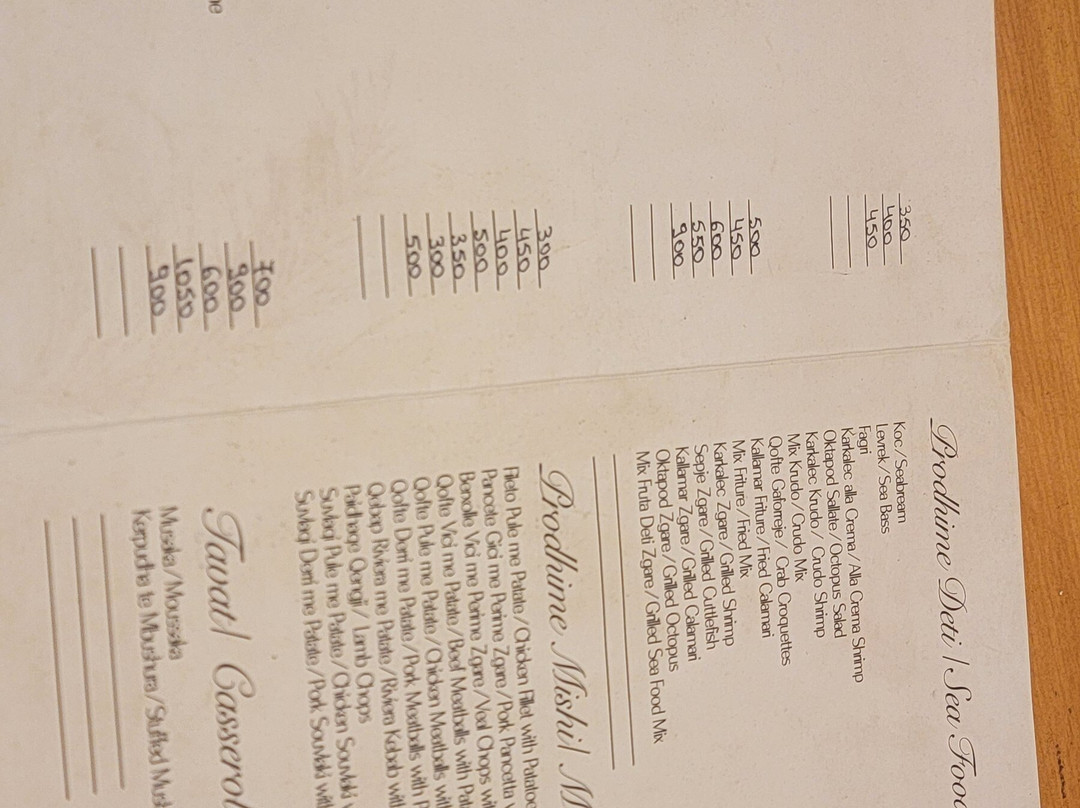 350
400
450
500
450
600
550
900
300
450
400
500
350
300
500
700
900
600
1050
900
Prodhime Deti / Sea Foo
Koc / Seabream
Levrek / Sea Bass
Fagri
Karkalec alla Crema / Alla Crema Shrimp
Oktapod Sallate / Octopus Salad
Karkalec Krudo / Crudo Shrimp
Mix Krudo / Crudo Mix
Qofte Gaforreje / Crab Croquettes
Kallamar Friture / Fried Calamari
Mix Friture / Fried Mix
Karkalec Zgare / Grilled Shrimp
Sepje Zgare / Grilled Cuttlefish
Kallamar Zgare / Grilled Calamari
Oktapod Zgare / Grilled Octopus
Mix Fruta Deti Zgare / Grilled Sea Food Mix
Prodhime Mishi / M
Fileto Pule me Patate / Chicken Fillet with Patatoe
Pancete Gici me Perime Zgare / Pork Panceta
Bonolle Vici me Perime Zgare / Veal Chops wi
Qofte Vici me Patate / Beef Meatballs with Pat
Qofte Pule me Patate / Chicken Meatballs wit
Qofte Derri me Patate / Pork Meatballs with P
Qebap Riviera me Patate / Riviera Kebab with
Paidhaqe Qengji / Lamb Chops
Suvlaqi Pule me Patate / Chicken Souvlaki
Suvlaqi Derri me Patate / Pork Souvlaki with
Tava / Casserol
Musaka / Moussaka
Kerpudha te Mbushura / Stuffed Mush